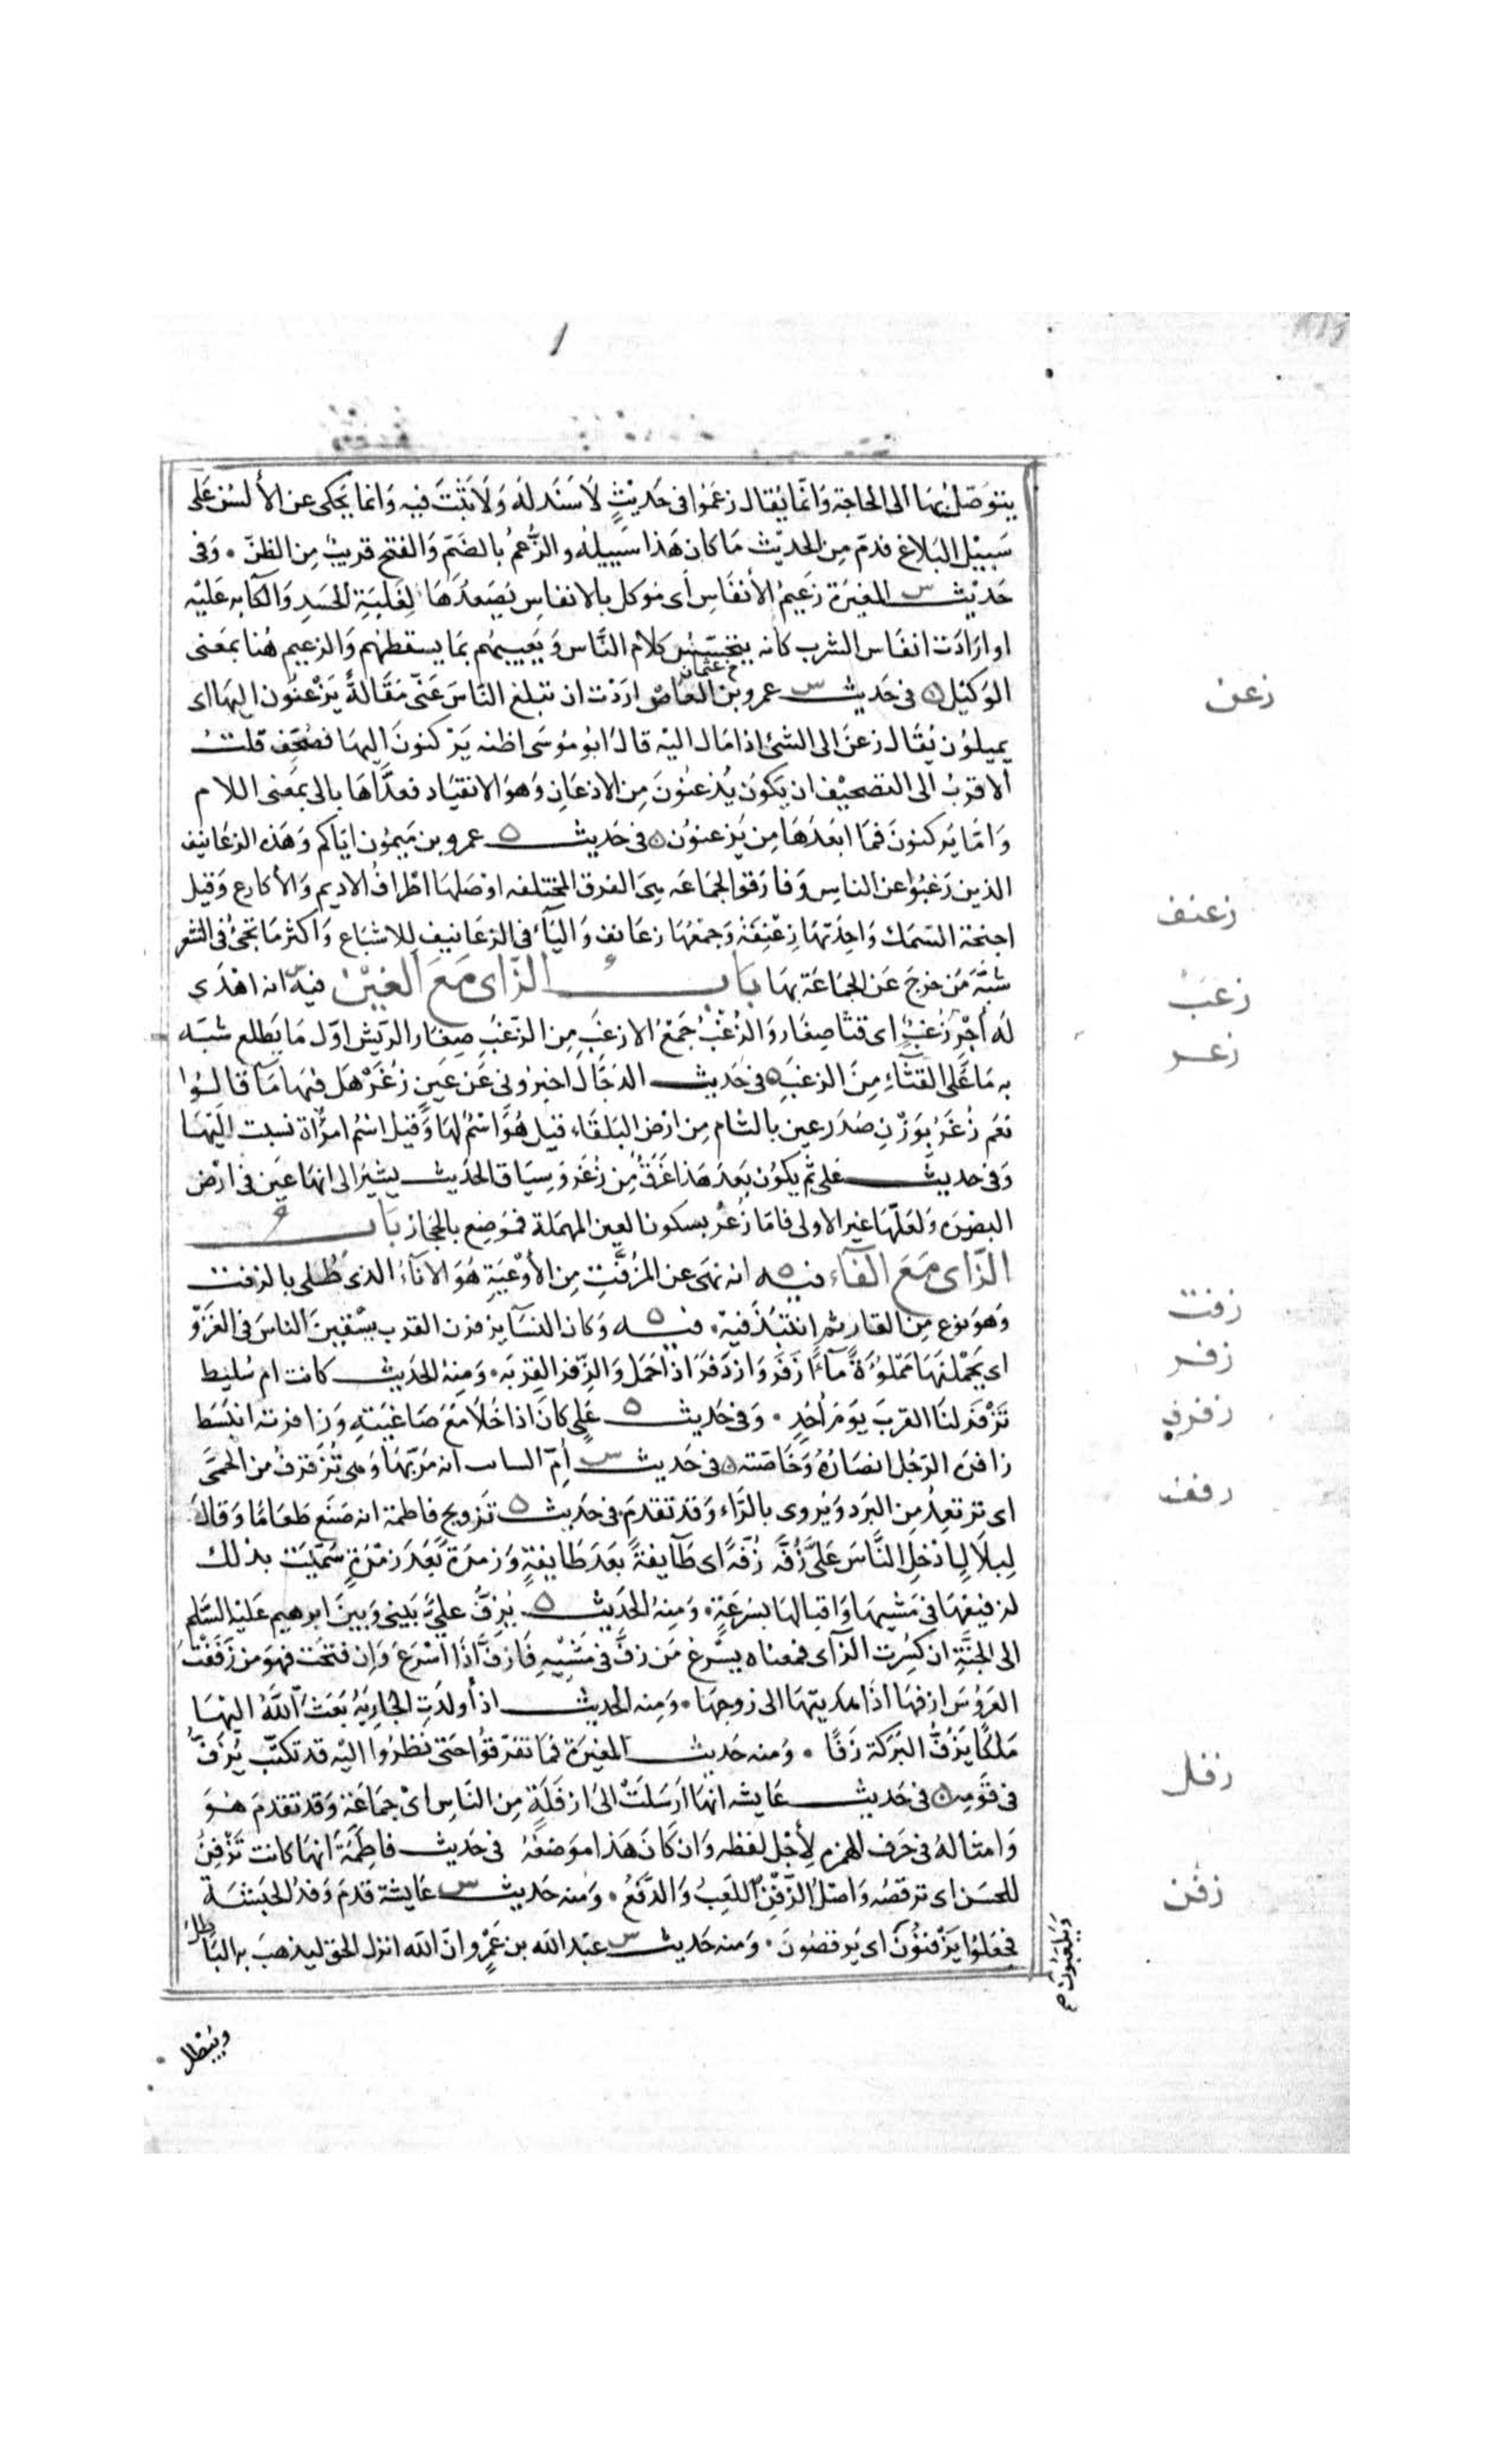 يتوصل بها الى الحاجة وَانّما يُقال زعَمُوا فى حَديْثٍ لَا سَنَدَ لَه وَلَا ثَبْتَ فيه وَانما يَحكى عن الألسُن عَلى
سَبيْل البَلاغ فذمّ مِن الحديْث مَا كان هَذا سَبيلهُ والزُّعمُ بالضَمّ وَالفتح قريبٌ مِن الظنّ ٠ وَفى
حَديْث س المغيرَة زَعيمُ الأنفَاس أى مُوكل بالانفاس يُصَعدُهَا لِغَلبَةِ الحسَدِ وَالكآبه عَليْه
او ارَادَت انفَاس الشرب كانه يتجَسّسُ كلام النَّاس وَيَعيبهُم بمَا يسقطهُم وَالزعيم هُنا بمعنى
الوَكيْل ٥ فى حَديث س عمرو بن العَاصْ اردْت ان تبلغ النّاسَ عَنّى مَقَالةً يَزْعنُون اليهَا اى
يميلوُن يُقَال زعنَ الى الشئ اذا مَال اليْه قالَ ابو مُوسَى اظنه يَرْكنونَ اليهَا فصُحِف قلتُ
الاقربُ الى التصحيْف ان يَكونَ يُذعنُونَ مِن الاذعَانِ وَهوَ الانقيَاد فعدَّاهَا بالى بمَعنى اللام
وَامّا يَركنونَ فمَا ابعَدَهَا مِن يَزعنوُن ٥ فى حَديث ٥ عمرو بن مَيموُن ايّاكم وَهَذه الزعَانيف
الذين رَغبُوا عن الناس وَفارَقوا الجمَاعَه هِىَ الفرق المختلفه اوصَلهَا اطرافُ الاديم وَالأكارع وَقيل
اجنحة السّمَك وَاحِدَتهَا زِعْنِفَة وَجمْعُهَا زعَانف وَاليَآءُ فى الزعَانيف لِلاشبَاع وَاكثر مَا تجئ فى الشعر
شبَّهَ مَن خرَجَ عَن الجمَاعَة بهَا بَابُ الزّاى مَعَ الغَيْن فيْه س انه اهْدَى
لَه أجْرٍ زُغبٌ اى قثّا صِغَار وَالزُغْبُ جَمْعُ الازغَب مِن الزغَبِ صِغَار الريْش اوّل مَا يَطلع شبّه
به مَا عَلى القثَّآءِ مِنَ الزغَبِ ٥ فى حَديث الدجّال اخبرُونى عَن عَينِ زُغَرْ هَل فيهَا مَآ قالوُا
نعَم زُغَرُ بوَزْنِ صُرَد عين بالشام مِن ارْض البَلقَاءِ قيل هُوَ اسْمٌ لهَا وَقيل اسْمُ امْرَأة نسبت اليْهَا
وَفى حديث عَلى ثم يكوُن بَعدَ هَذا غرَقٌ مِن زُغَر وَسِيَاق الحدَيث يشيرُ الى انهَا عَين فى ارْض
البصرَه وَلَعَلّهَا غير الاولى فامّا زُعْر بسكون العين المهمَلة فمَوضع بالحجَاز بَابُ
الزّاى مَعَ الفَآءِ فيه ٥ انه نهَى عن المُزَفَّتِ مِن الأوْعيَةِ هُوَ الانَآءُ الذى طُلى بالزفت
وَهوَ نوع مِن القارِ ثم انتُبذَ فيهْ ٠ فيه ٥ وَكان النسَآ يزفرن القرب يسْقينَ الناسَ فى الغَزَوِ
اى يَحْملنَهَا مَمْلوُءَةً مَآءً زَفَرَ وَازدَفرَ اذا حَمَل وَالزفر القربَه ٠ وَمنهُ الحدَيث كانت ام سُليط
تَزْفرُ لنَا القرَبَ يَومَ أحُدٍ ٠ وَفى حَديث ٥ عَلى كانَ اذا خَلَا مَعَ صَاغيَتهِ وَزافرته انبَسَط
زافرَة الرَجُل انصَارُهُ وَخَاصّته ٥ فى حَديث س أمّ الساب انه مَرّ بهَا وَهى تُزَفزفُ من الحمّى
اى ترتعِدُ مِن البرَد وَيُروى بالرَّاء وَقد تقدمَ فى حَديث ٥ تزويج فاطمة انه صَنَع طَعَامًا وَقالَ
لِبلَالٍ ادْخل النَّاسَ عَلىَّ زُفّه زُفّةً اى طَآيفةً بَعدَ طَايفةٍ وَزمرَة بَعدَ زمْرَةٍ سُمّيت بذلك
لزفيفهَا فى مَشيهَا وَاقبالهَا بسُرعَةٍ ٠ وَمنهُ الحَديث ٥ يُزفُّ علىٌّ بَينى وَبينَ ابرهيم عَليه السَّلم
الى الجنَّةِ ان كسِرت الزاى فمعناه يُسرع مَن زفَّ فى مَشيهِ فَازفَّ اذا اسْرَعَ وَان فتحَت فهوَ من زَفَفْتُ
العَرُوسَ ازفهَا اذَا اهديتهَا الى زوجهَا ٠ وَمِنه الحديث اذا ولدَتِ الجاريَةُ بَعَثَ اللّهُ اليْهَا
مَلكًا يَزُفُّ البَرَكة زَفًا ٠ وَمنه حَديث المغيرَة فمَا تفرّقوُا حَتى نظرُوا اليْه قد تكتّب يُزَفُّ
فى قَومِهِ ٥ فى حَديث عَايشه انهَا ارْسَلتْ الى ازفَلَةٍ مِن النَّاسِ اىْ جمَاعَة وَقد تقدمَ هُوَ
وَامثالهُ فى حَرف الهمزه لأجْل لفظه وَان كانَ هَذا مَوضعُهُ فى حَديث فاطِمَة انهَا كانت تَزْفِنُ
للحسَن اى ترقصُه وَاصْلُ الزَّفْنِ اللعِبُ وَالدّفْعُ ٠ وَمنه حَديث س عَايشة قدمَ وَفدُ الحبَشَة
فجعَلوُا يَزْفنوُنَ اى يَرقصُونَ ٠ وَمنه حَديث س عبْد اللّه بن عَمْرو انّ اللّه انزل الحق ليذهبَ به البَاطِل
وَيَلعَبُونَ
زعن
زعنف
زغب
زغر
زفت
زفر
زفزف
زفف
زفل
زفن
ويبطل